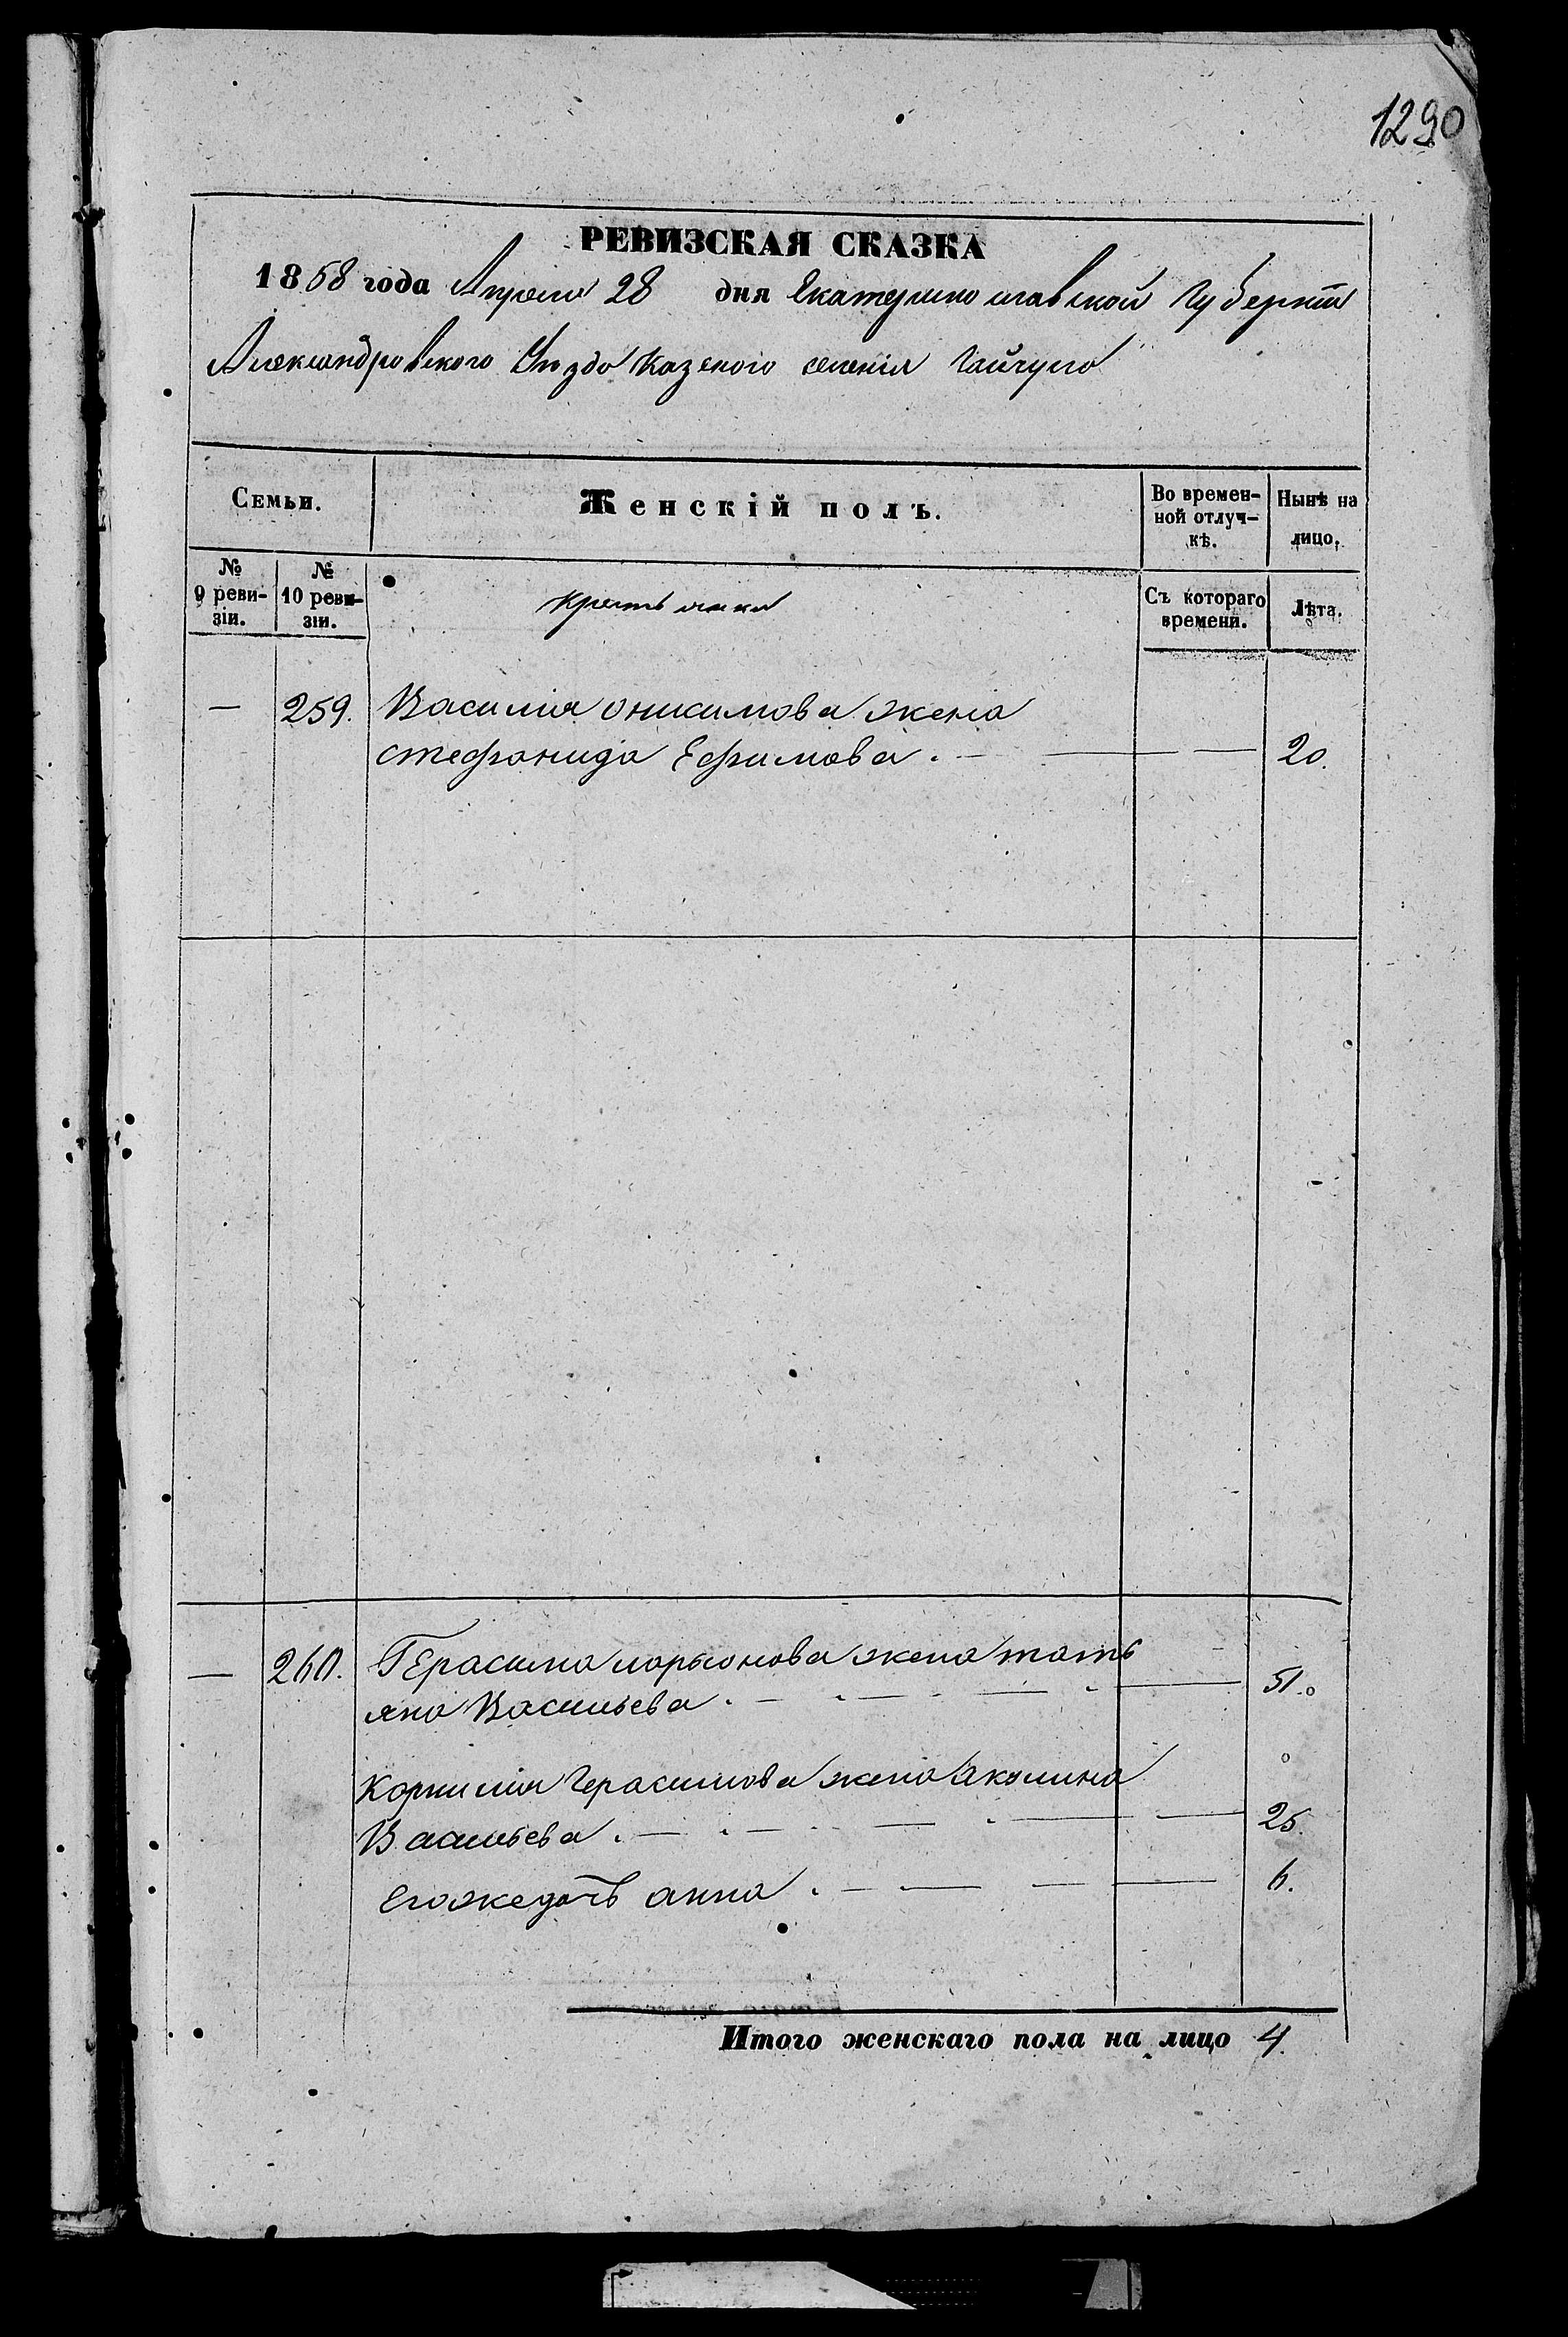 1290
РЕВИЗСКАЯ СКАЗКА
1858 года Апреля 28 дня Екатеринославской Губернiи
Александровского Уѣзда Казеного селенiя Гайчула
Семьи. Женскiй полъ. Во времен-ной отлуч-кѣ. Нынѣ на лицо.
№ 9 реви-зiи. № 10 реви-зiи. Крестьянки Съ котораго времени. Лѣта.
— 259. Василiя Онисимова жена
стефанида Ефимова. — 20.
— 260. Герасима ларионова жена тать
яна Васильева. — 51.
Корнилiя Герасимова жена Акулина
Васильева. — 25.
Егожедочь анна. — 6.
Итого женскаго пола на лицо 4.